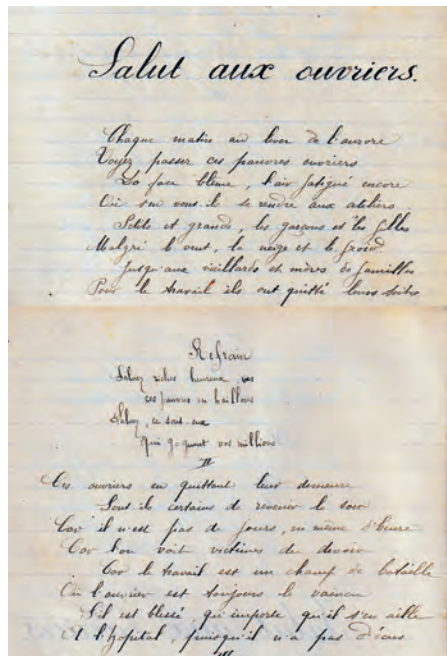 Salut aux ouvriers.
Chaque matin au lever de l'aurore
Voyez passer ces pauvres ouvriers
La face blême, l'air fatigué encore
Où s'en vont-ils se rendre aux ateliers
Petits et grands, les garçons et les filles
Malgré le vent, la neige et le froid
Jusqu'aux vieillards et mères de familles
Pour le travail ils ont quitté leurs toits
Refrain
Saluez riches heureux ces
ces pauvres en haillons
Saluez, ce sont eux
qui gagnent vos millions
II
Ces ouvriers en quittant leur demeure
Sont-ils certains de revenir le soir
Car il n'est pas de jours, ni même d'heure
Car l'on voit victimes du devoir
Car le travail est un champ de bataille
Où l'ouvrier est toujours le vaincu
S'il est blessé qu'importe qu'il s'en aille
A l'hôpital, puisqu'il n'a pas d'écus
III